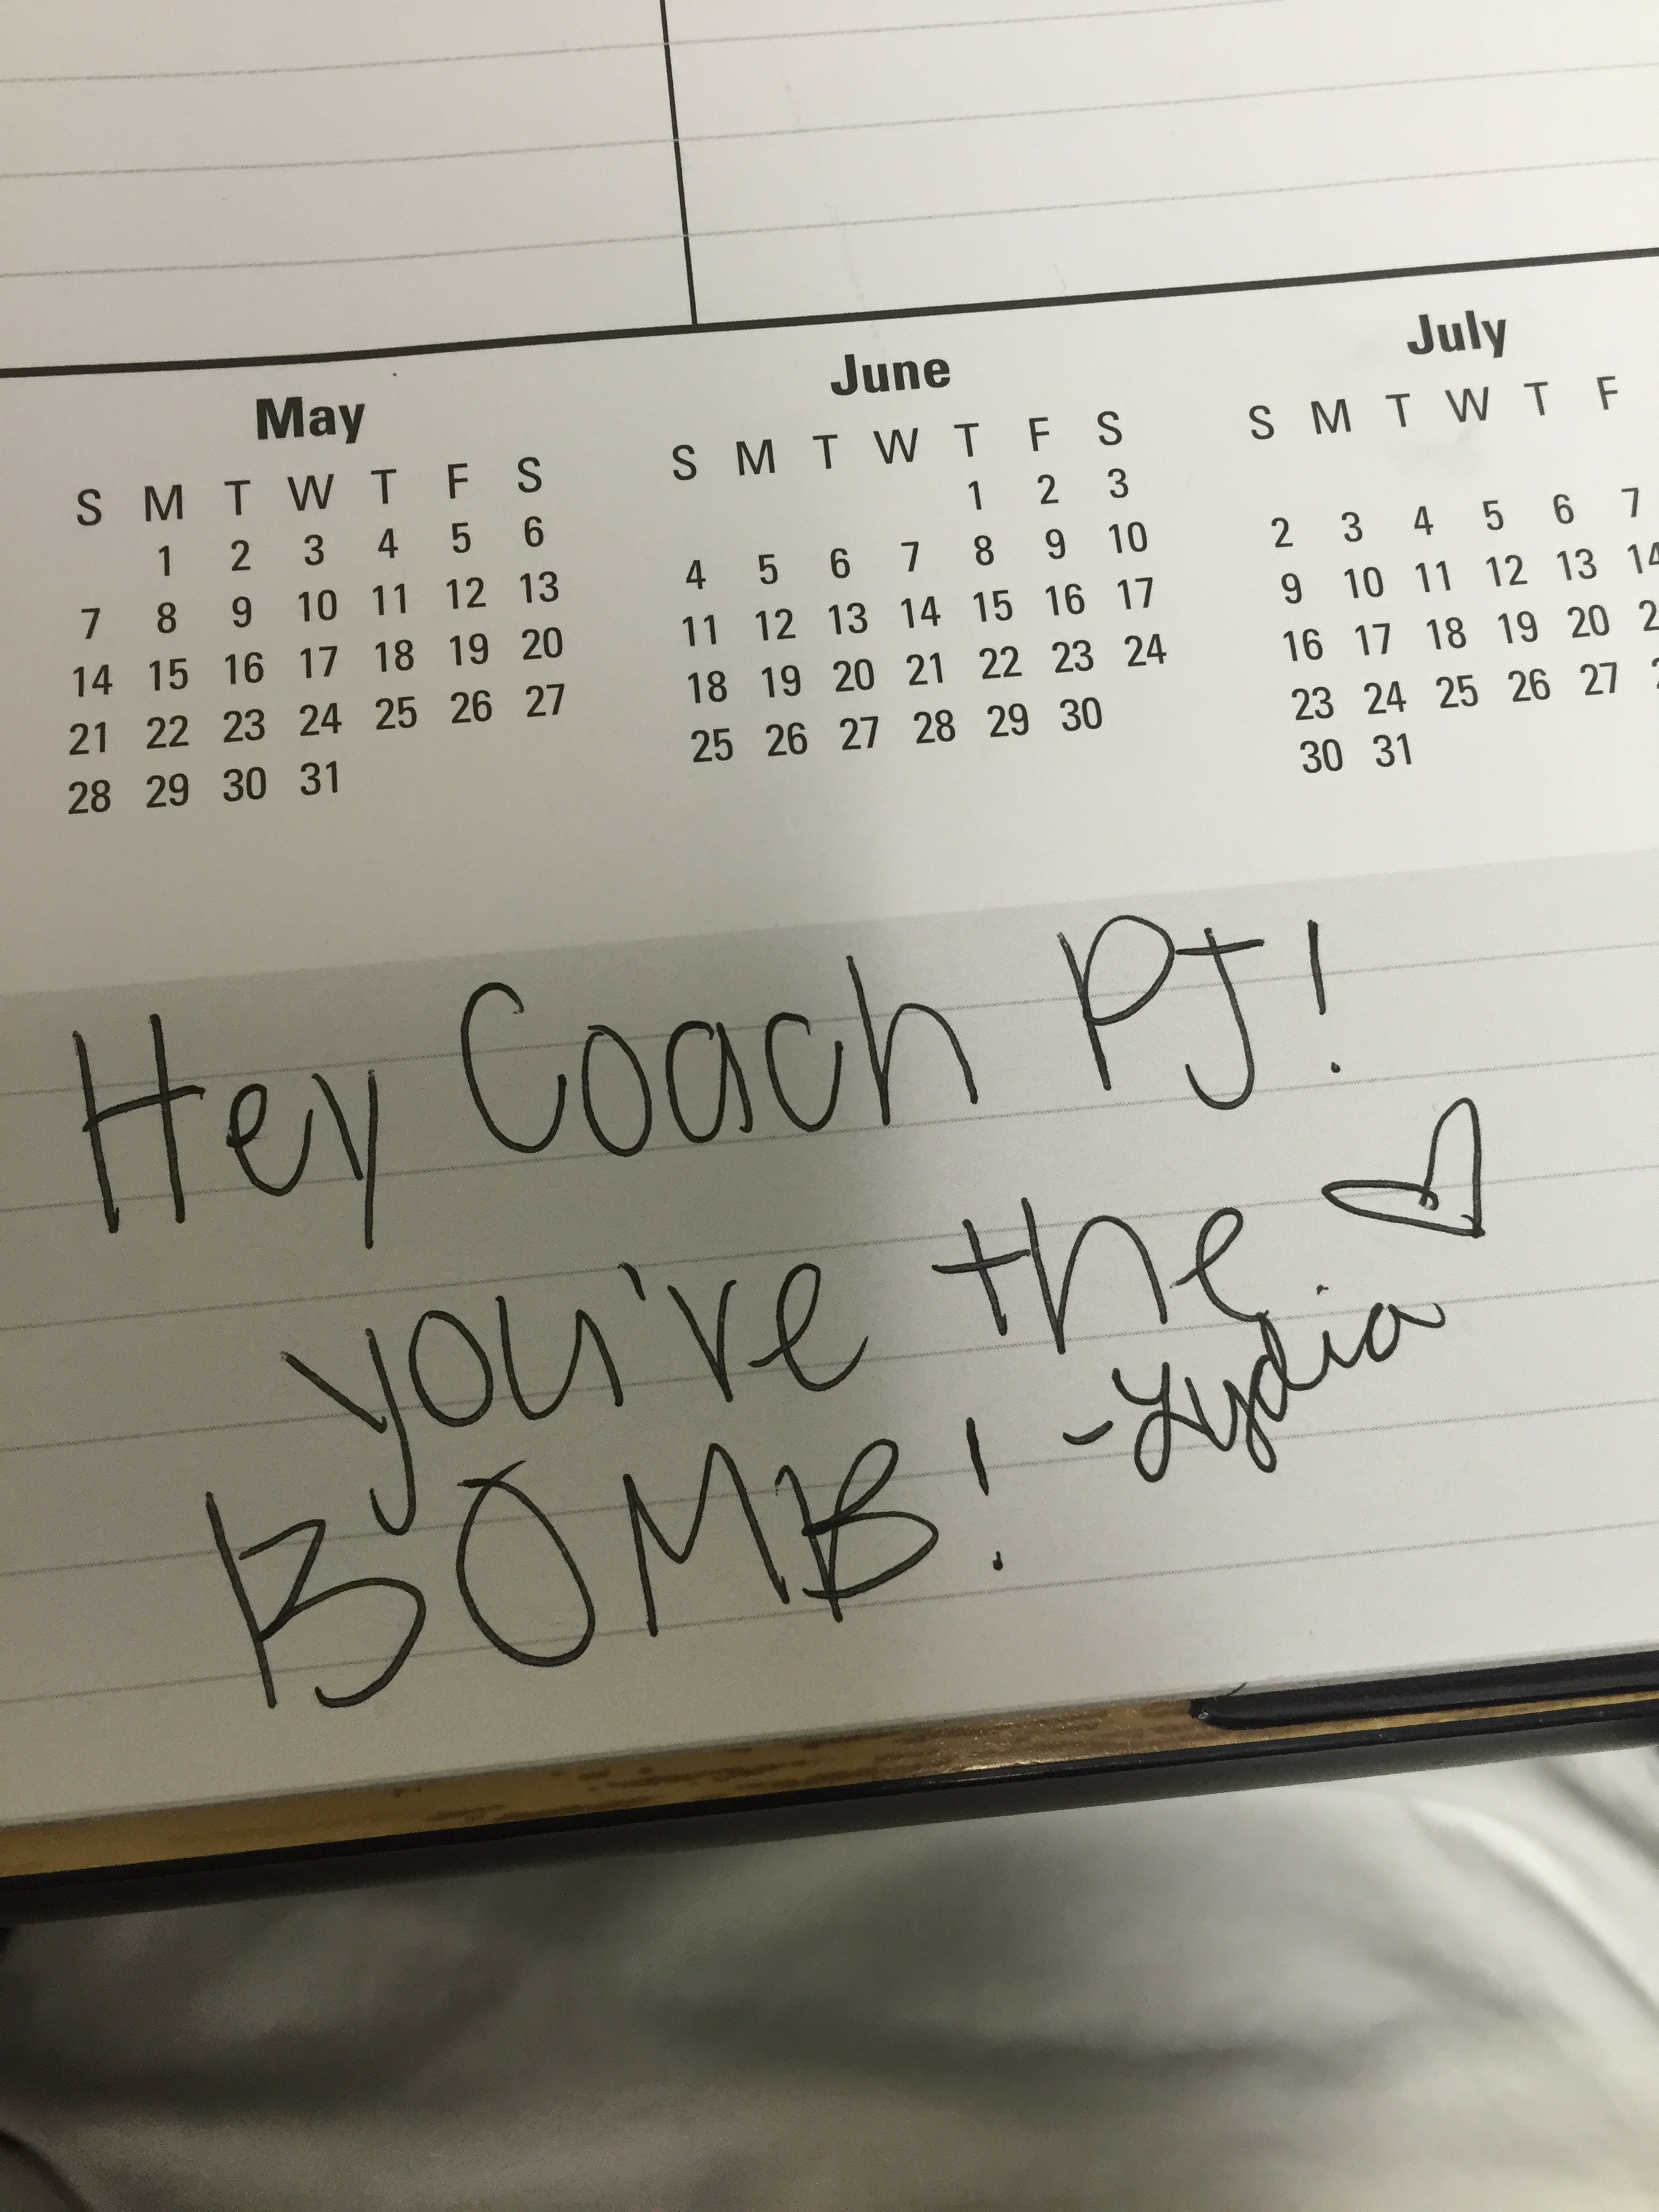 May
S M T W T F S
1 2 3 4 5 6
7 8 9 10 11 12 13
14 15 16 17 18 19 20
21 22 23 24 25 26 27
28 29 30 31
June
S M T W T F S
1 2 3
4 5 6 7 8 9 10
11 12 13 14 15 16 17
18 19 20 21 22 23 24
25 26 27 28 29 30
July
S M T W T F
2 3 4 5 6 7
9 10 11 12 13 14
16 17 18 19 20
23 24 25 26 27
30 31
Hey Coach PJ!
you've the
BOMB! -Lydia